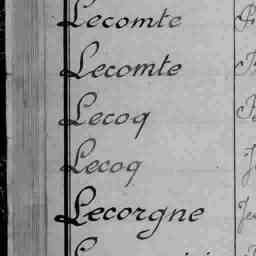 Lecomte
Lecomte
Lecoq
Lecoq
Lecorgne